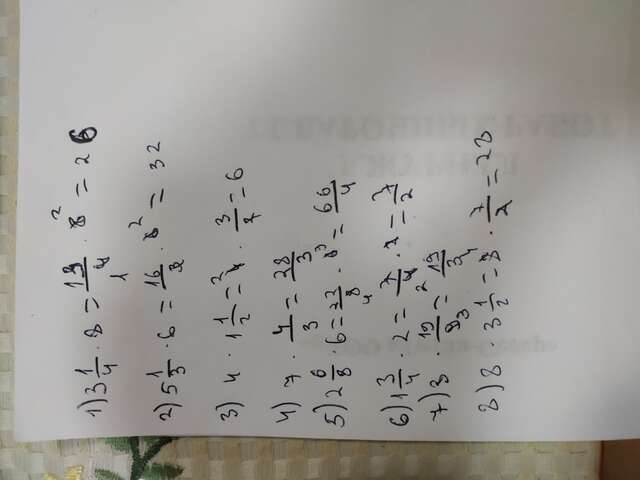 1) 3 1/4 · 8 = 13/4 · 8 2 = 26
1
2) 5 1/3 · 6 = 16/3 · 6 2 = 32
3) 4 · 1 1/2 = 2 4 · 3/2 = 6
4) 7 · 4/3 = 28/3
5) 2 6/8 · 6 = 22/8 4 · 6 3 = 66/4
6) 1 3/4 · 2 = 7/4 · 2 = 7/2
7) 3 · 19/9 3 = 19/3
8) 8 · 3 1/2 = 8 4 · 7/2 = 28